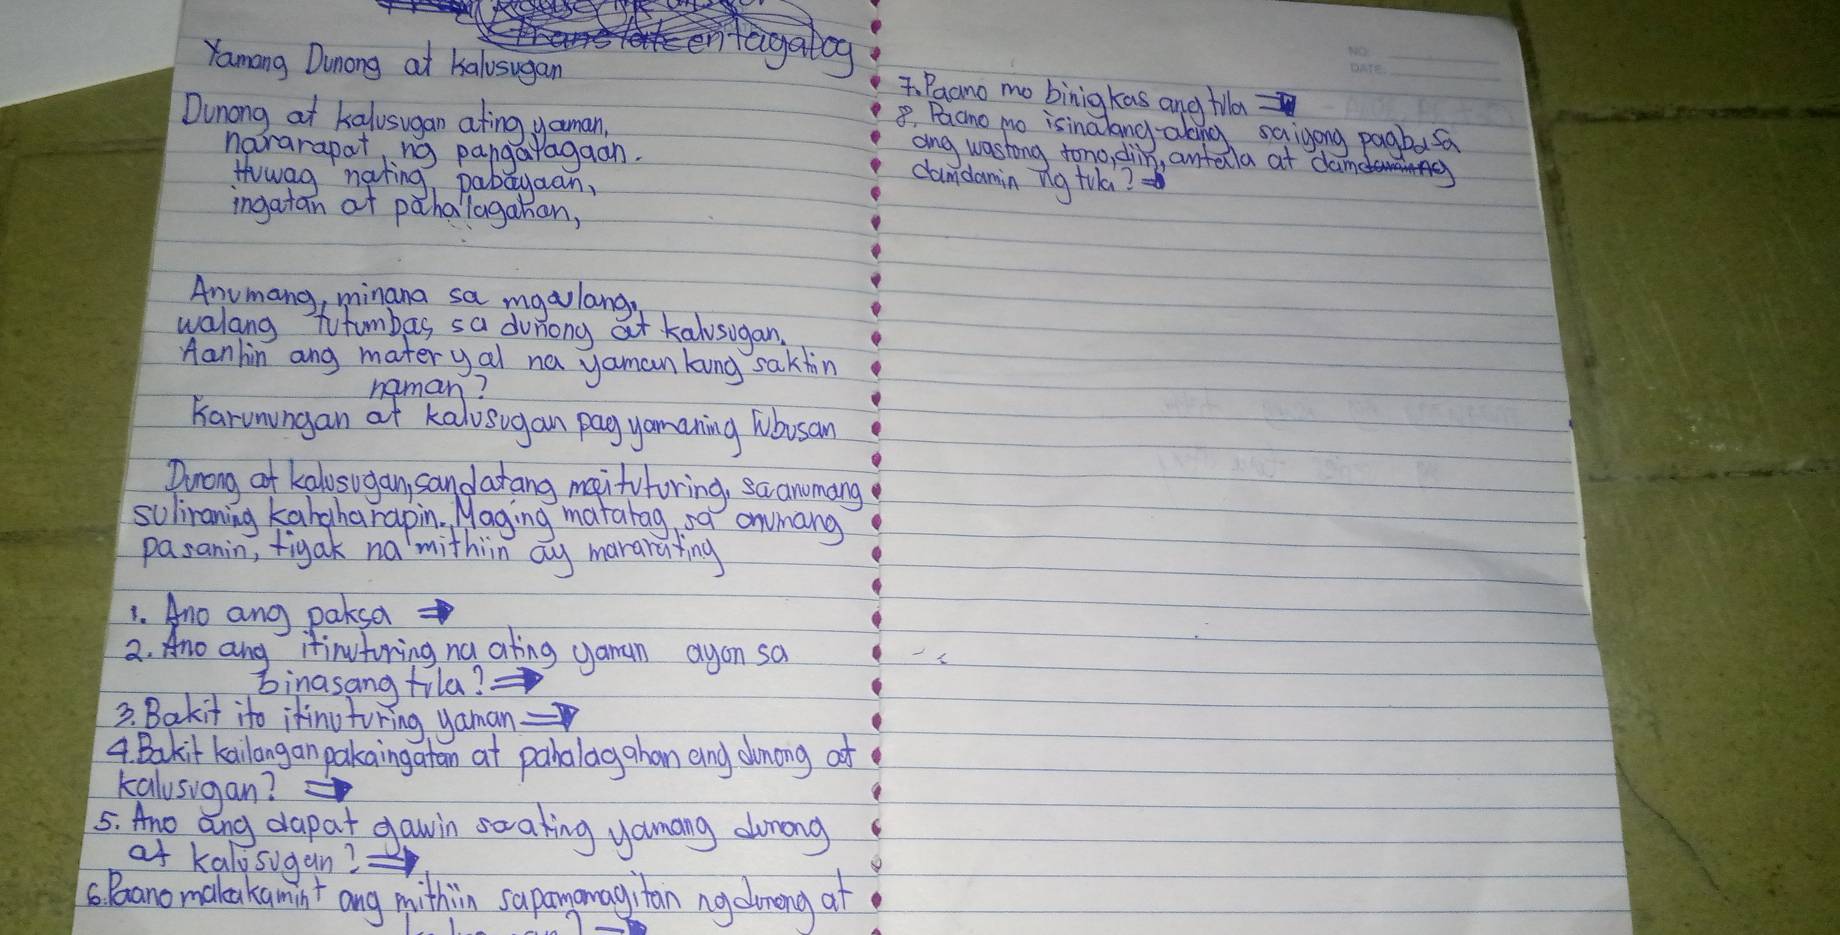 Translate en tagalog
Yamang Dunong at Kalusugan
Dunong at kalusugan ating yaman,
nararapat ng pangalagaan.
Huwag nating pabayaan,
ingatan at pahalagahan,
Anumang minana sa mga lang,
walang tutumbas sa dunong at kalusugan.
Aanhin ang materyal na yaman kung saktin
naman?
Karunungan at kalusugan pag yamaning lubusan
Dunong at kalusugan, sandatang maituturing, sa anumang
suliraning kahaharapin. Maging matatag sa anumang
pasanin, tiyak na mithiin ay mararating
1. Ano ang paksa
2. Ano ang itinuturing na ating yaman ayon sa
binasang tula?
3. Bakit ito itinuturing yaman
4. Bakit kailangan pakaingatan at pahalagahan ang dunong at
kalusugan?
5. Ano ang dapat gawin sa ating yamang dunong
at kalusugan?
6. Paano makakamint ang mithiin sapamamagitan ng dunong at
NO.
DATE.
7. Paano mo binigkas ang tila
8. Paano mo isinalang-alang sa iyong pagbasa
ang wastong tono, diin, antala at
damdamin ng tula?